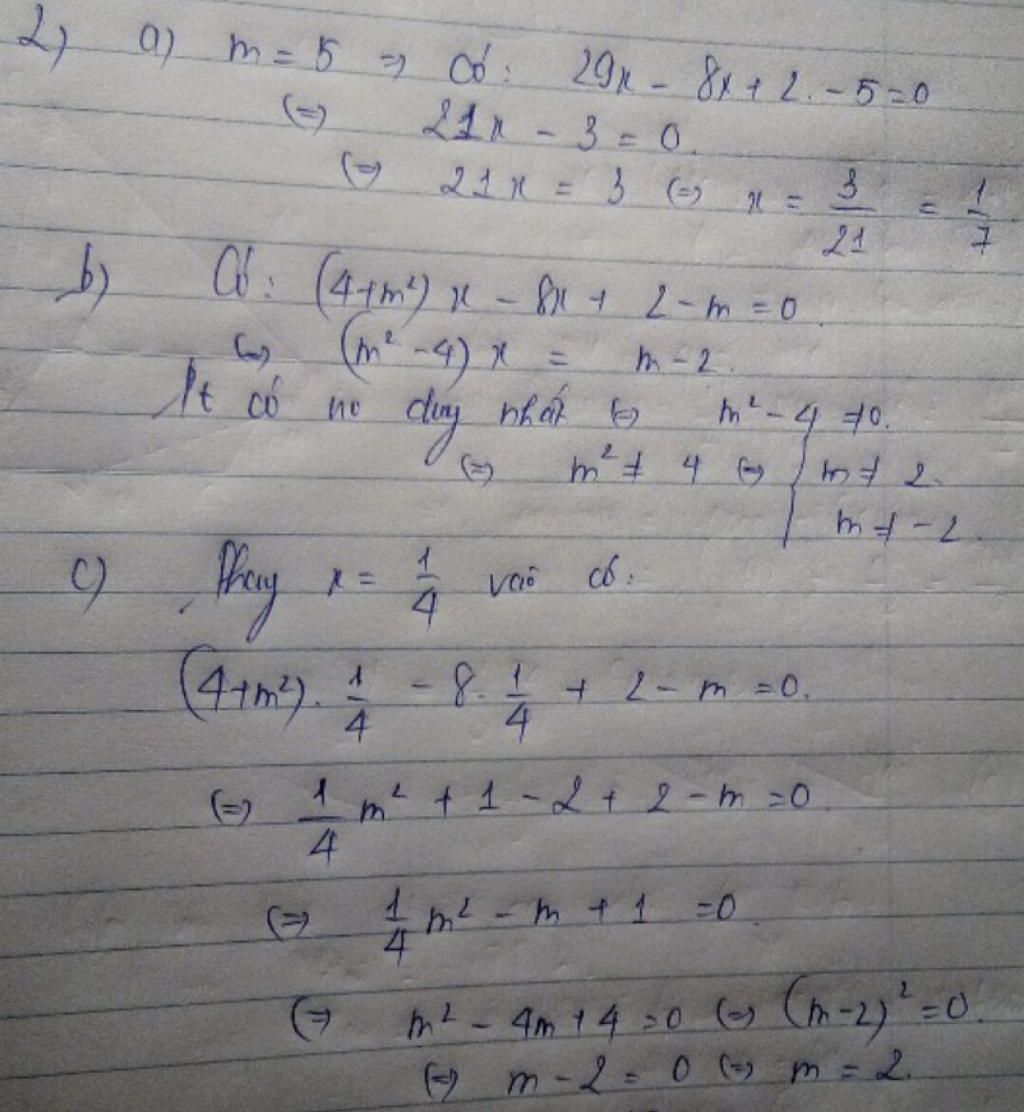 2) a) m = 5 => Có: 29x - 8x + 2 - 5 = 0
(=) 21x - 3 = 0.
(=) 21x = 3 (=) x = 3/21 = 1/7
b) Có: (4+m²) x - 8x + 2 - m = 0
(=) (m² - 4) x = m - 2.
Pt có no duy nhất (=) m² - 4 ≠ 0.
(=) m² ≠ 4 (=) { m ≠ 2.
m ≠ -2.
c) Thay x = 1/4 vào có:
(4+m²). 1/4 - 8. 1/4 + 2 - m = 0.
(=) 1/4 m² + 1 - 2 + 2 - m = 0
(=) 1/4 m² - m + 1 = 0
(=) m² - 4m + 4 = 0 (=) (m-2)² = 0.
(=) m - 2 = 0 (=) m = 2.